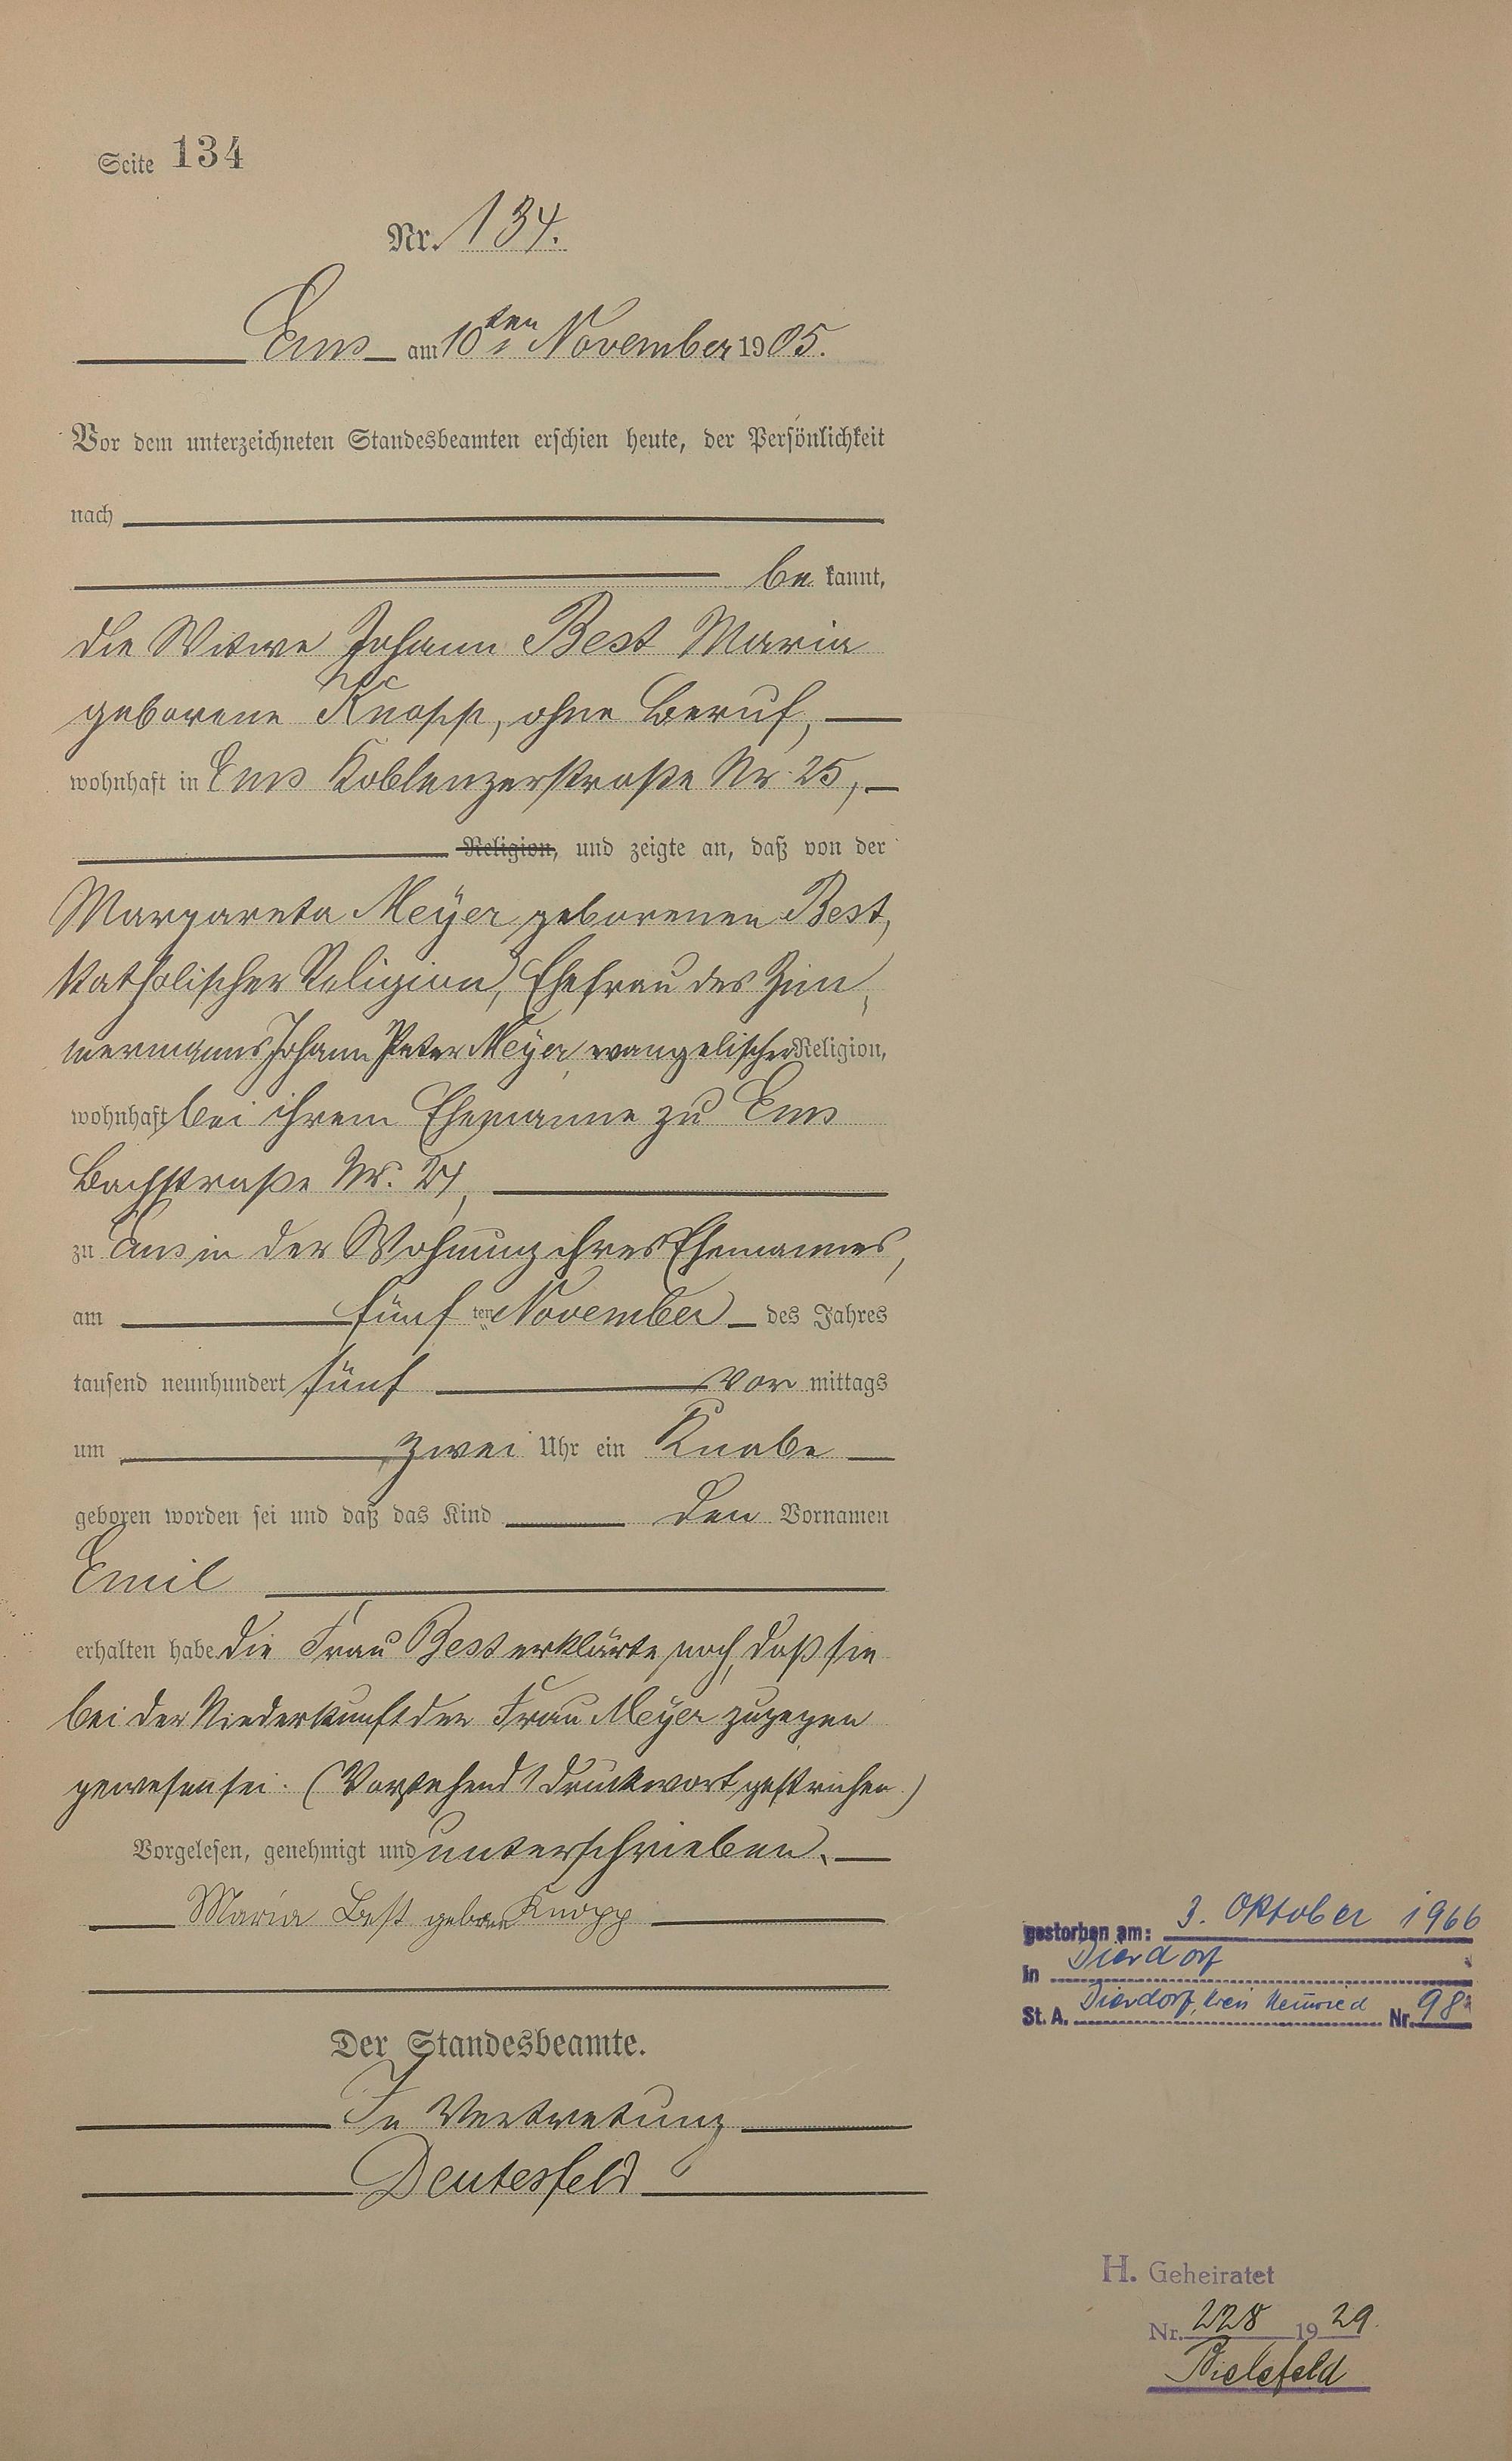 Seite 134
Nr. 134.
Ems am 10ten November 1905.
Vor dem unterzeichneten Standesbeamten erschien heute, der Persönlichkeit
nach
be kannt,
die Witwe Johann Best Maria
geborene Knopp, ohne Beruf,
wohnhaft in Ems Koblenzerstraße Nr. 25,
Religion, und zeigte an, daß von der
Margareta Meyer geborenen Best,
katholischer Religion, Ehefrau des Zim¬
mermanns Johann Peter Meyer, evangelischer Religion,
wohnhaft bei ihrem Ehemanne zu Ems
Bachstraße Nr.
zu Ems in der Wohnung ihres Ehemannes,
am fünf ten November des Jahres
tausend neunhundert fünf vor mittags
um zwei Uhr ein Knabe
geboren worden sei und daß das Kind den Vornamen
Emil
erhalten habe. Die Frau Best erklärte noch, daß sie
bei der Niederkunft der Frau Meyer zugegen
gewesen sei. (Vorstehend 1 Druckwort gestrichen.)
Vorgelesen, genehmigt und unterschrieben.
Maria Best geborene Knopp
Der Standesbeamte.
In Vertretung
Deutesfeld
gestorben am: 3. Oktober 1966
in Dierdorf
St. A. Dierdorf, Kreis Neuwied Nr. 98
H. Geheiratet
Nr. 228 1929.
Bielefeld